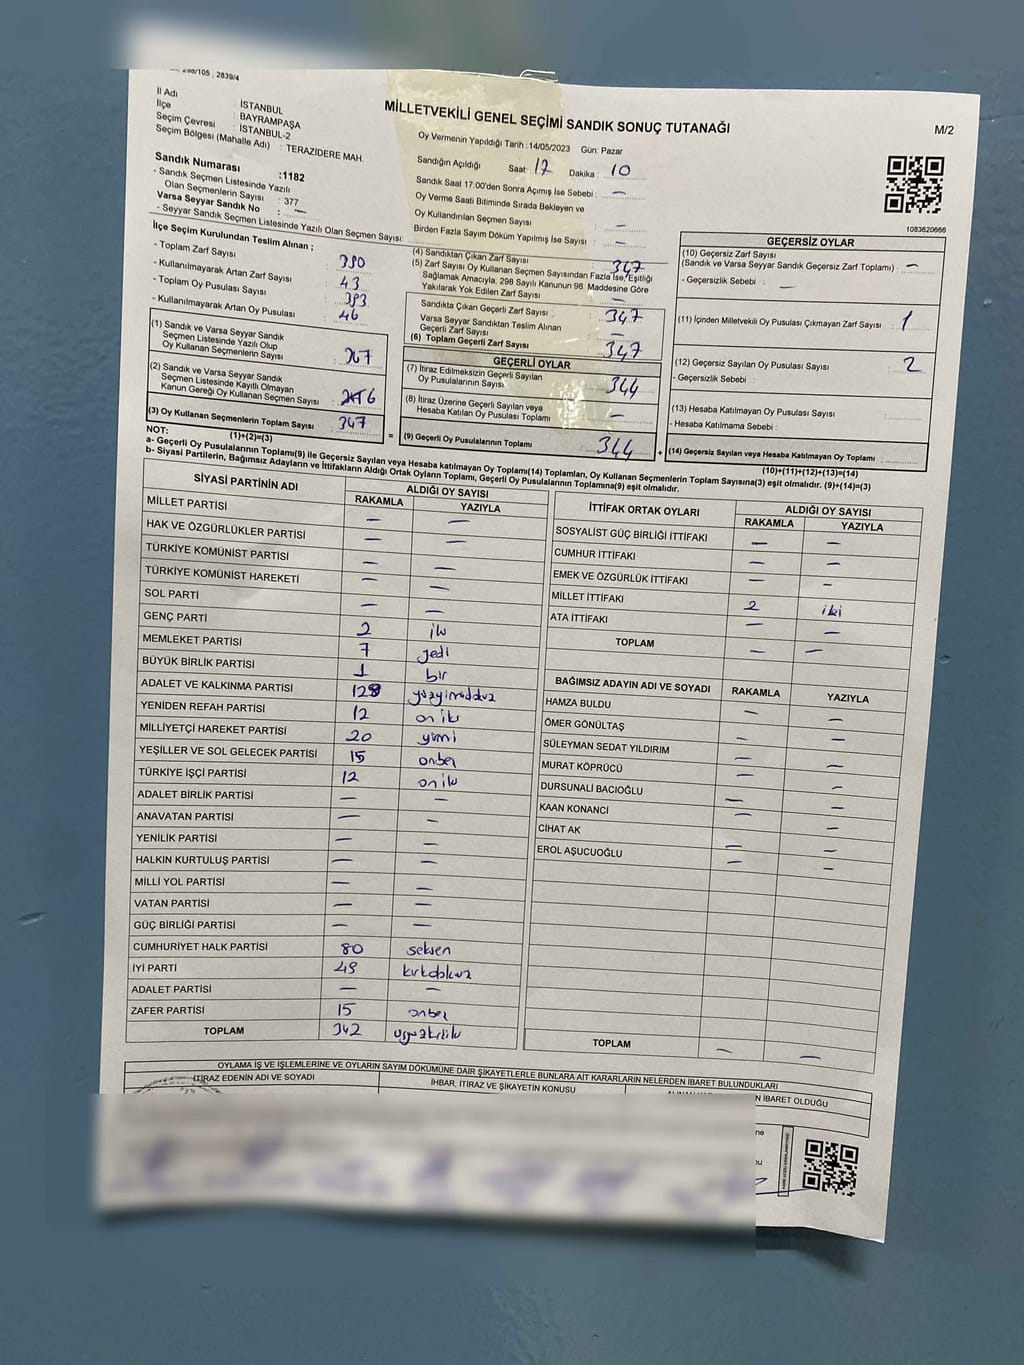 298/105 , 2839/4
İl Adı : İSTANBUL
İlçe : BAYRAMPAŞA
Seçim Çevresi : İSTANBUL-2
Seçim Bölgesi (Mahalle Adı) : TERAZİDERE MAH.
MİLLETVEKİLİ GENEL SEÇİMİ SANDIK SONUÇ TUTANAĞI
M/2
Oy Vermenin Yapıldığı Tarih :14/05/2023 Gün: Pazar
Sandığın Açıldığı Saat: 17 Dakika : 10
Sandık Saat 17:00'den Sonra Açımış İse Sebebi : —
Oy Verme Saati Bitiminde Sırada Bekleyen ve
Oy Kullandırılan Seçmen Sayısı : —
Birden Fazla Sayım Döküm Yapılmış İse Sayısı : —
Sandık Numarası :1182
- Sandık Seçmen Listesinde Yazılı
Olan Seçmenlerin Sayısı : 377
Varsa Seyyar Sandık No : —
- Seyyar Sandık Seçmen Listesinde Yazılı Olan Seçmen Sayısı:
1083620666
İlçe Seçim Kurulundan Teslim Alınan ;
- Toplam Zarf Sayısı : 390
- Kullanılmayarak Artan Zarf Sayısı : 43
- Toplam Oy Pusulası Sayısı : 393
- Kullanılmayarak Artan Oy Pusulası : 46
(1) Sandık ve Varsa Seyyar Sandık
Seçmen Listesinde Yazılı Olup
Oy Kullanan Seçmenlerin Sayısı :
(2) Sandık ve Varsa Seyyar Sandık
Seçmen Listesinde Kayıtlı Olmayan
Kanun Gereği Oy Kullanan Seçmen Sayısı :
(3) Oy Kullanan Seçmenlerin Toplam Sayısı : 347
(1)+(2)=(3)
(4) Sandıktan Çıkan Zarf Sayısı : 347
(5) Zarf Sayısı Oy Kullanan Seçmen Sayısından Fazla İse, Eşitliği
Sağlamak Amacıyla, 298 Sayılı Kanunun 98. Maddesine Göre
Yakılarak Yok Edilen Zarf Sayısı : —
Sandıkta Çıkan Geçerli Zarf Sayısı : 347
Varsa Seyyar Sandıktan Teslim Alınan
Geçerli Zarf Sayısı : —
(6) Toplam Geçerli Zarf Sayısı : 347
GEÇERLİ OYLAR
(7) İtiraz Edilmeksizin Geçerli Sayılan
Oy Pusulalarının Sayısı : 344
(8) İtiraz Üzerine Geçerli Sayılan veya
Hesaba Katılan Oy Pusulası Toplamı : —
= (9) Geçerli Oy Pusulalarının Toplamı : 344
GEÇERSİZ OYLAR
(10) Geçersiz Zarf Sayısı
(Sandık ve Varsa Seyyar Sandık Geçersiz Zarf Toplamı) : —
- Geçersizlik Sebebi : —
(11) İçinden Milletvekili Oy Pusulası Çıkmayan Zarf Sayısı : 1
(12) Geçersiz Sayılan Oy Pusulası Sayısı : 2
- Geçersizlik Sebebi :
(13) Hesaba Katılmayan Oy Pusulası Sayısı :
- Hesaba Katılmama Sebebi :
+ (14) Geçersiz Sayılan veya Hesaba Katılmayan Oy Toplamı :
(10)+(11)+(12)+(13)=(14)
NOT:
a- Geçerli Oy Pusulalarının Toplamı(9) ile Geçersiz Sayılan veya Hesaba katılmayan Oy Toplamı(14) Toplamları, Oy Kullanan Seçmenlerin Toplam Sayısına(3) eşit olmalıdır. (9)+(14)=(3)
b- Siyasi Partilerin, Bağımsız Adayların ve İttifakların Aldığı Ortak Oyların Toplamı, Geçerli Oy Pusulalarının Toplamına(9) eşit olmalıdır.
SİYASİ PARTİNİN ADI ALDIĞI OY SAYISI
RAKAMLA YAZIYLA
MİLLET PARTİSİ — —
HAK VE ÖZGÜRLÜKLER PARTİSİ — —
TÜRKİYE KOMÜNİST PARTİSİ — —
TÜRKİYE KOMÜNİST HAREKETİ — —
SOL PARTİ — —
GENÇ PARTİ 2 iki
MEMLEKET PARTİSİ 7 yedi
BÜYÜK BİRLİK PARTİSİ 1 bir
ADALET VE KALKINMA PARTİSİ 129 yüzyirmidokuz
YENİDEN REFAH PARTİSİ 12 on iki
MİLLİYETÇİ HAREKET PARTİSİ 20 yirmi
YEŞİLLER VE SOL GELECEK PARTİSİ 15 onbeş
TÜRKİYE İŞÇİ PARTİSİ 12 on iki
ADALET BİRLİK PARTİSİ — —
ANAVATAN PARTİSİ — —
YENİLİK PARTİSİ — —
HALKIN KURTULUŞ PARTİSİ — —
MİLLİ YOL PARTİSİ — —
VATAN PARTİSİ — —
GÜÇ BİRLİĞİ PARTİSİ — —
CUMHURİYET HALK PARTİSİ 80 seksen
İYİ PARTİ 49 kırkdokuz
ADALET PARTİSİ — —
ZAFER PARTİSİ 15 onbeş
TOPLAM 342 üçyüzkırkiki
İTTİFAK ORTAK OYLARI ALDIĞI OY SAYISI
RAKAMLA YAZIYLA
SOSYALİST GÜÇ BİRLİĞİ İTTİFAKI — —
CUMHUR İTTİFAKI — —
EMEK VE ÖZGÜRLÜK İTTİFAKI — —
MİLLET İTTİFAKI 2 iki
ATA İTTİFAKI — —
TOPLAM — —
BAĞIMSIZ ADAYIN ADI VE SOYADI RAKAMLA YAZIYLA
HAMZA BULDU — —
ÖMER GÖNÜLTAŞ — —
SÜLEYMAN SEDAT YILDIRIM — —
MURAT KÖPRÜCÜ — —
DURSUNALİ BACIOĞLU — —
KAAN KONANCİ — —
CİHAT AK — —
EROL AŞUCUOĞLU — —
TOPLAM — —
OYLAMA İŞ VE İŞLEMLERİNE VE OYLARIN SAYIM DÖKÜMÜNE DAİR ŞİKAYETLERLE BUNLARA AİT KARARLARIN NELERDEN İBARET BULUNDUKLARI
İTİRAZ EDENİN ADI VE SOYADI İHBAR, İTİRAZ VE ŞİKAYETİN KONUSU
N İBARET OLDUĞU